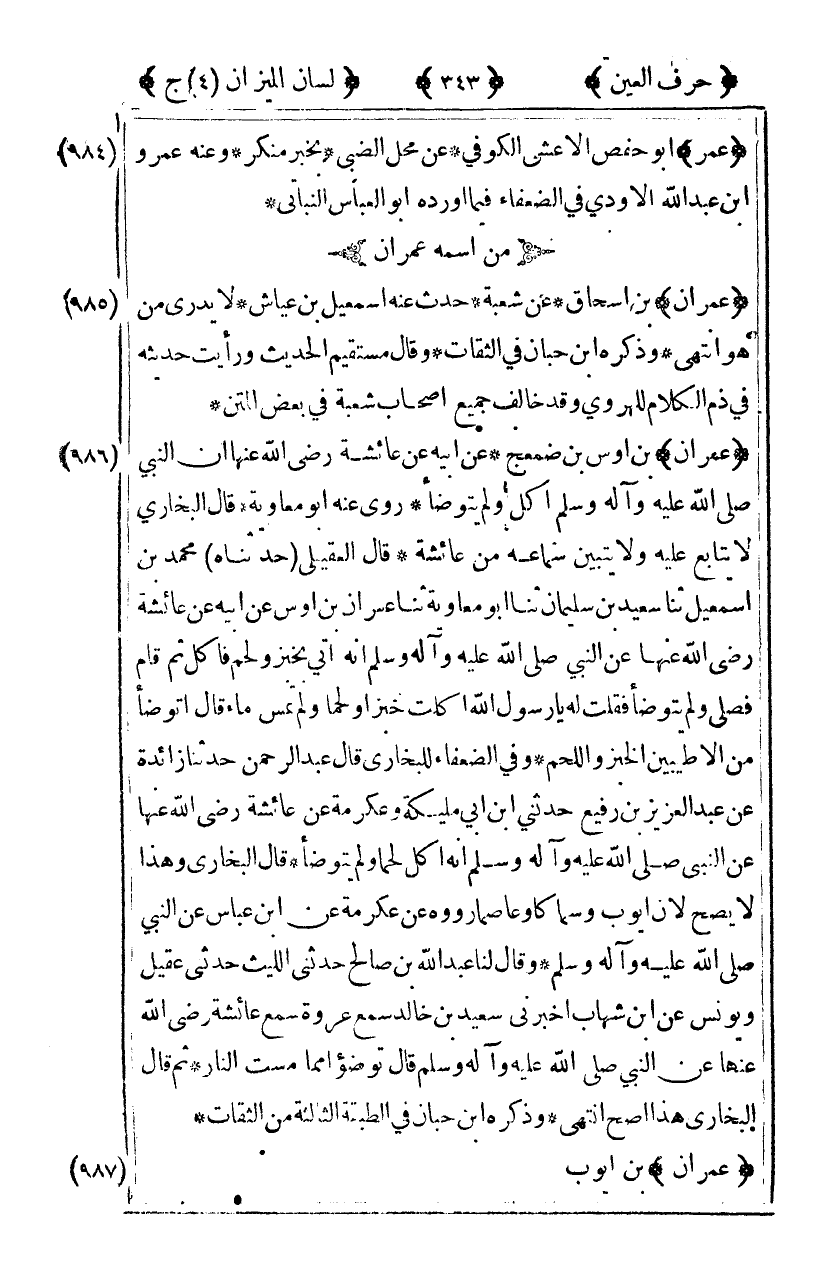 ﴿ حرف العين ﴾ ﴿ ٣٤٣ ﴾ ﴿ لسان الميزان (٤) ج ﴾
﴿عمر﴾ ابو حفص الاعشى الكوفي * عن محل الضبي * بخبر منكر * وعنه عمرو (٩٨٤)
ابن عبد الله الاودي في الضعفاء فيما اورده ابو العباس النباتى *
من اسمه عمران
﴿عمران﴾ بن اسحاق * عن شعبة * حدث عنه اسمعيل بن عياش * لا يدرى من (٩٨٥)
هو انتهى * وذكره ابن حبان في الثقات * وقال مستقيم الحديث ورأيت حديثه
في ذم الكلام للهروي وقد خالف جميع اصحاب شعبة في بعض المتن *
﴿عمران﴾ بن اوس بن ضمعج * عن ابيه عن عائشة رضى الله عنها ان النبي (٩٨٦)
صلى الله عليه وآله وسلم اكل ولم يتوضأ * روى عنه ابو معاوية * قال البخاري
لا يتابع عليه ولا يتبين سماعه من عائشة * قال العقيلى (حدثناه) محمد بن
اسمعيل ثنا سعيد بن سليمان ثنا ابو معاوية ثنا عمران بن اوس عن ابيه عن عائشة
رضى الله عنها عن النبي صلى الله عليه وآله وسلم انه اتي بخبز ولحم فاكل ثم قام
فصلى ولم يتوضأ فقلت له يا رسول الله اكلت خبزا ولحما ولم تمس ماء قال اتوضأ
من الاطيبين الخبز واللحم * وفي الضعفاء للبخارى قال عبد الرحمن حدثنا زائدة
عن عبد العزيز بن رفيع حدثني ابن ابي مليكة وعكرمة عن عائشة رضى الله عنها
عن النبى صلى الله عليه وآله وسلم انه اكل لحما ولم يتوضأ * قال البخارى وهذا
لا يصح لان ايوب وسماكا وعاصما رووه عن عكرمة عن ابن عباس عن النبي
صلى الله عليه وآله وسلم * وقال لنا عبد الله بن صالح حدثنى الليث حدثنى عقيل
ويونس عن ابن شهاب اخبرنى سعيد بن خالد سمع عروة سمع عائشة رضى الله
عنها عن النبي صلى الله عليه وآله وسلم قال توضؤا مما مست النار * ثم قال
البخارى هذا اصح انتهى * وذكره ابن حبان في الطبقة الثالثة من الثقات *
﴿عمران﴾ بن ايوب (٩٨٧)